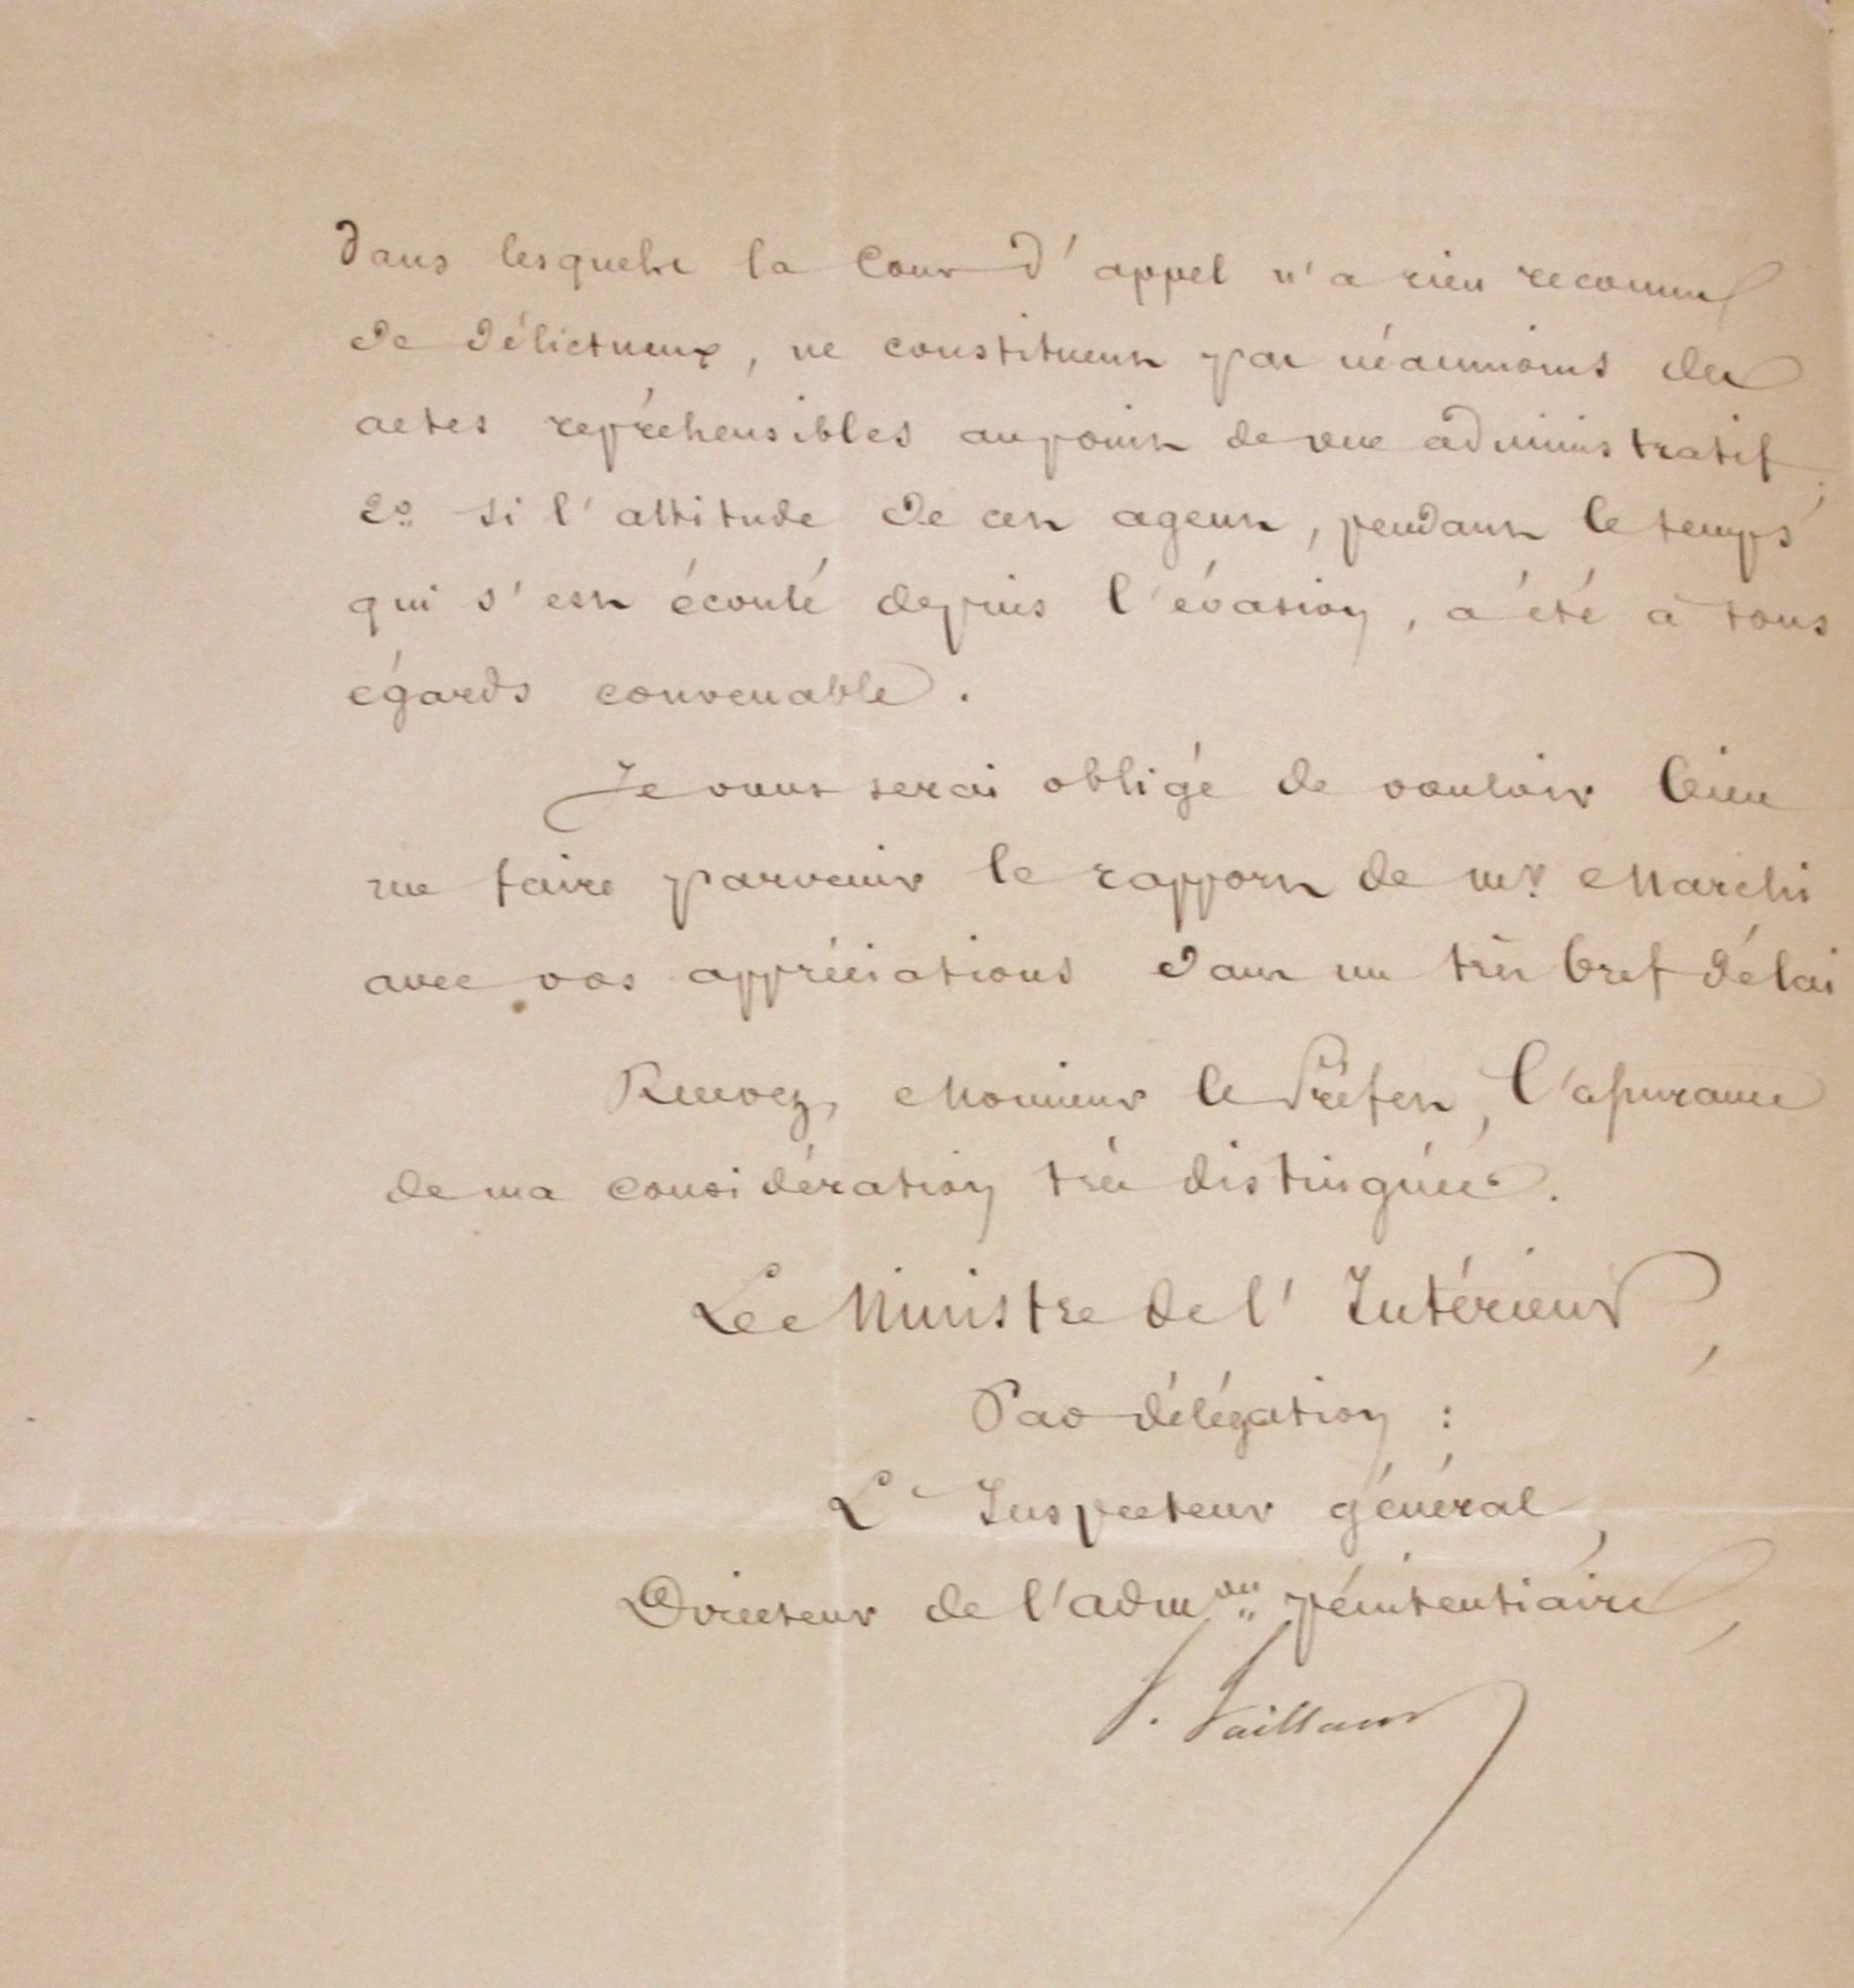 dans lesquels la Cour d'appel n'a rien reconnu
de délictueux, ne constituent pas néanmoins des
actes repréhensibles au point de vue administratif;
2º si l'attitude de cet agent, pendant le temps
qui s'est écoulé depuis l'évasion, a été à tous
égards convenable.
Je vous serai obligé de vouloir bien
me faire parvenir le rapport de Mr. Marchi
avec vos appréciations dans un très bref délai
Recevez, Monsieur le Préfet, l'assurance
de ma considération très distinguée.
Le Ministre de l'Intérieur,
Par délégation :
L'Inspecteur général,
Directeur de l'admon pénitentiaire,
Vaillant